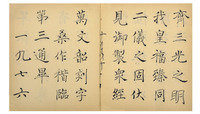 齊三光之明
我皇福臻同
二儀之固伏
見御製眾經
萬文韶刻字
桑作楷臨
第三通畢
一九七六